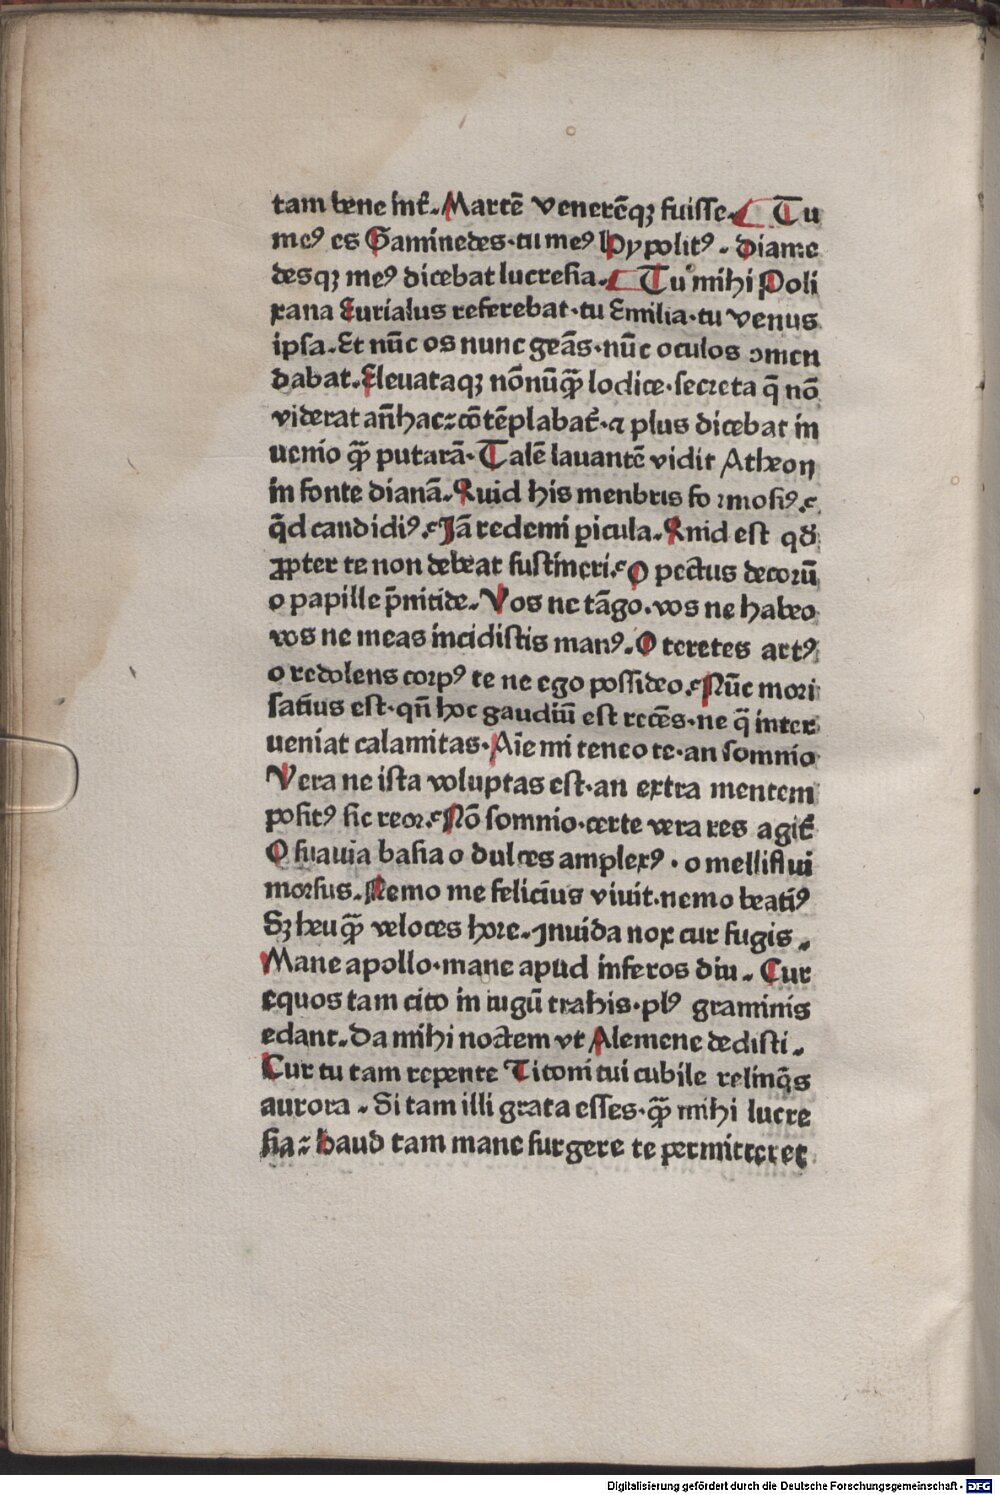 tam bene int᷑. Martē Venerēqꝫ fuisse. Tu
meꝰ es Gaminedes·tu meꝰ Hypolitꝰ. Diame
desqꝫ meꝰ dicebat lucresia. Tu mihi Poli
xana Eurialus referebat·tu Emilia·tu venus
ipsa. Et nūc os nunc geās·nūc oculos ↄmen
dabat. Eleuataqꝫ nōnūqꝫ̄ lodice·secreta q̄ nō
viderat an̄hac⹀cōtēplabat᷑·⁊ plus dicebat in
uenio qꝫ̄ putarā·Talē lauantē vidit Atheon
in fonte dianā. Quid his menbris formosiꝰ?
q̄d candidiꝰ? Jā redemi ꝑicula. Quid est qđ
ꝓpter te non debeat sustineri? O pectus decorū
o papille p̄nitide. Vos ne tāgo. vos ne habeo
vos ne meas incidistis manꝰ. O teretes artꝰ
o redolens corpꝰ te ne ego possideo? Nūc mori
satius est·qn̄ hoc gaudiū est recēs·ne q̄ inter
ueniat calamitas·Aīe mi teneo te·an somnio
Vera ne ista voluptas est·an extra mentem
positꝰ sic reor? Nō somnio·certe vera res agit᷑
O suauia basia o dulces amplexꝰ · o melliflui
morsus. Nemo me felicius viuit·nemo beatiꝰ
Sꝫ heu qꝫ̄ veloces hore. Inuida nox cur fugis.
Mane apollo·mane apud inferos diu. Cur
equos tam cito in iugū trahis·plꝰ graminis
edant. Da mihi noctem vt Alemene dedisti.
Cur tu tam repente Titoni tui cubile relinq̄s
aurora. Si tam illi grata esses·qꝫ̄ mihi lucre
sia⹀haud tam mane surgere te permitteret
Digitalisierung gefördert durch die Deutsche Forschungsgemeinschaft - DFG